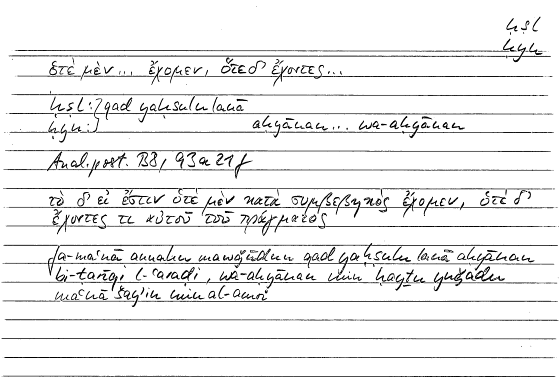 ḥṣl
ḥyn
ὁτὲ μὲν... ἔχομεν, ὅτε δ' ἔχοντες...
ḥṣl:} qad yaḥṣulu lanā
ḥyn:} aḥyānan... wa-aḥyānan
Anal. post. B8, 93a21f
τὸ δ' εἰ ἔστιν ὁτὲ μὲν κατὰ συμβεβηκὸς ἔχομεν, ὁτὲ δ'
ἔχοντές τι αὐτοῦ τοῦ πράγματος
fa-maʿnā annahu mawǧūdun qad yaḥṣulu lanā aḥyānan
bi-ṭarīqi l-ʿaraḍi, wa-aḥyānan min ḥayṯu yūǧadu
maʿnā šayʾin min al-amri